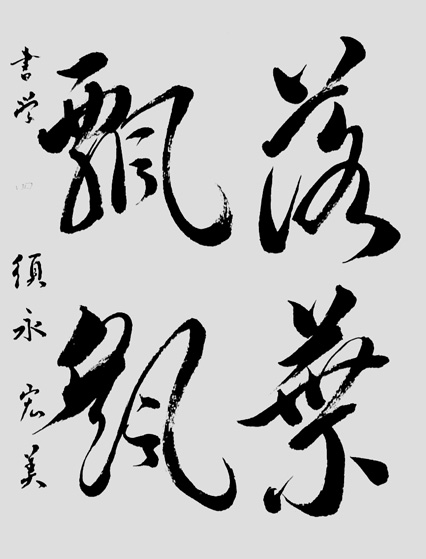 落葉
飄颻
書学 須永宏美